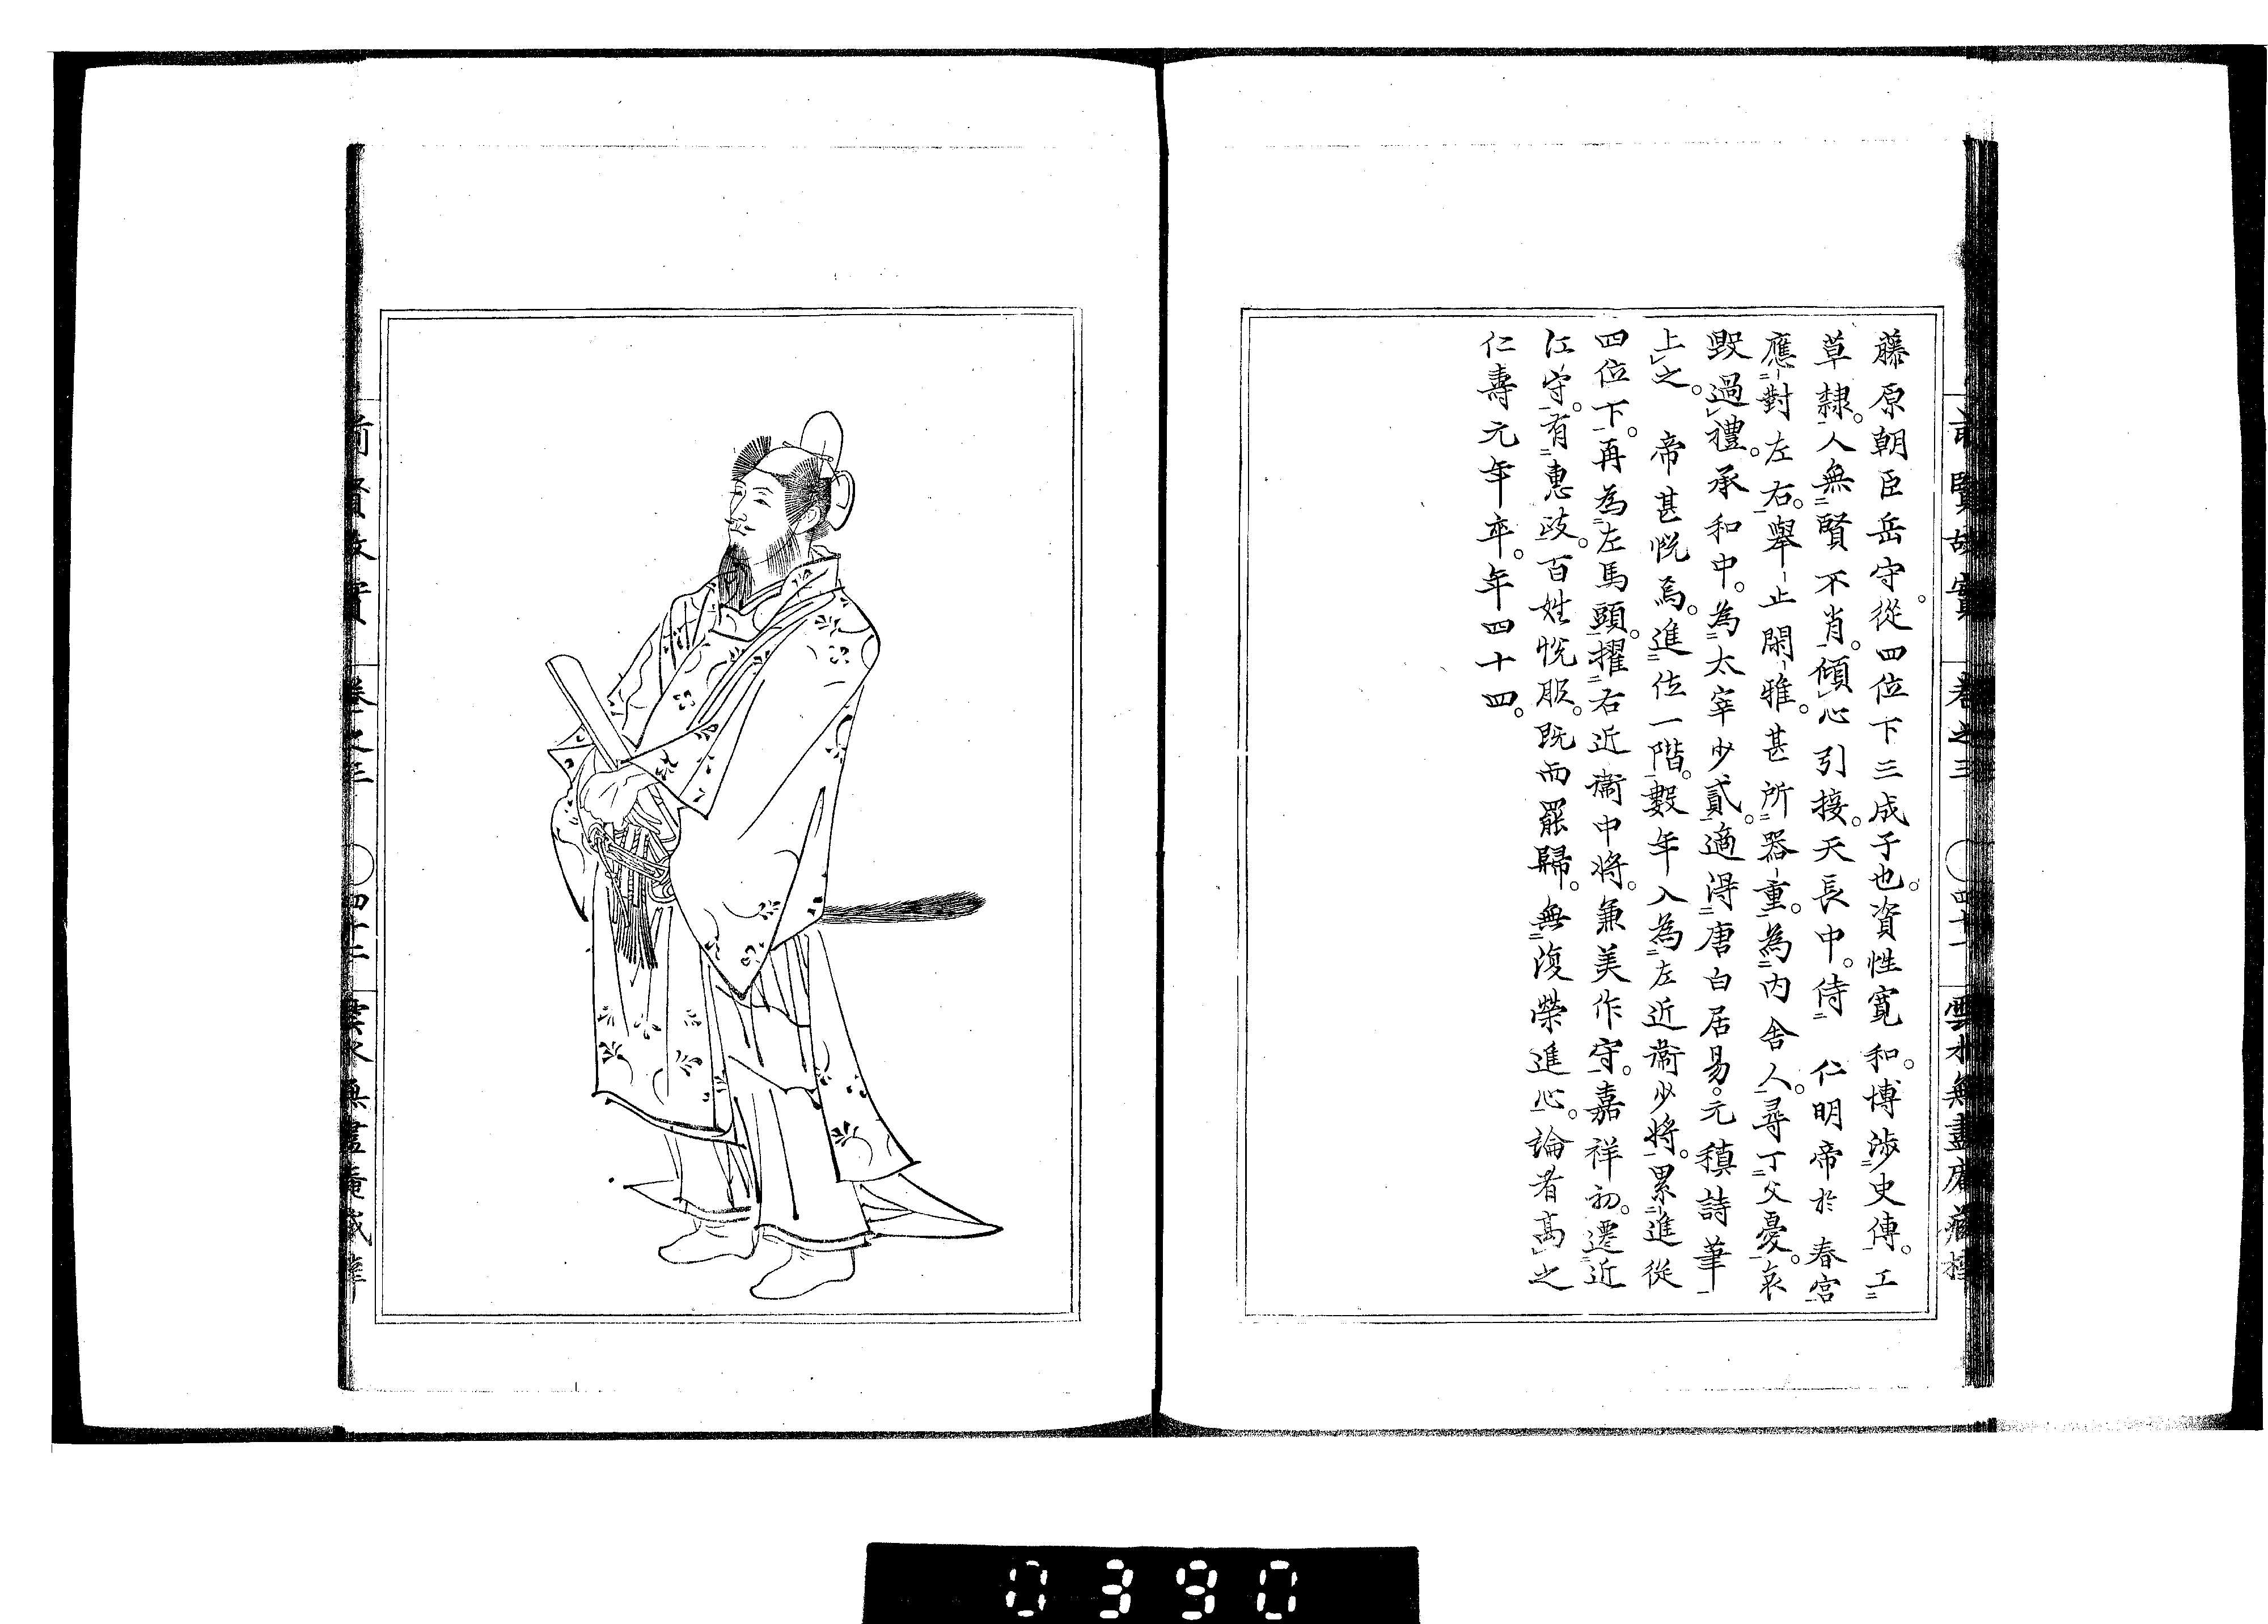 前賢故實　卷之三　〇四十一　雲水無盡庵藏
藤原朝臣岳守。從四位下三成子也。資性寬和。博渉史傳。工
草隷。人無賢不肖。傾心引接。天長中。侍　仁明帝於春宮
應對左右。擧止閑雅。甚所器重。為内舍人。尋丁父憂。哀
毀過禮。承和中。為太宰少貳。適得唐白居易。元稹詩筆
上之。　帝甚悦焉。進位一階。數年入為左近衞少將。累進從
四位下。再為左馬頭。擢右近衞中將。兼美作守。嘉祥初。遷近
江守。有惠政。百姓悦服。既而罷歸。無復榮進心。論者高之
仁壽元年卒。年四十四。
前賢故實　卷之三　〇四十二　雲水無盡庵藏
0390